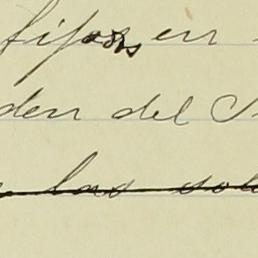 fijos en
den del
las sol